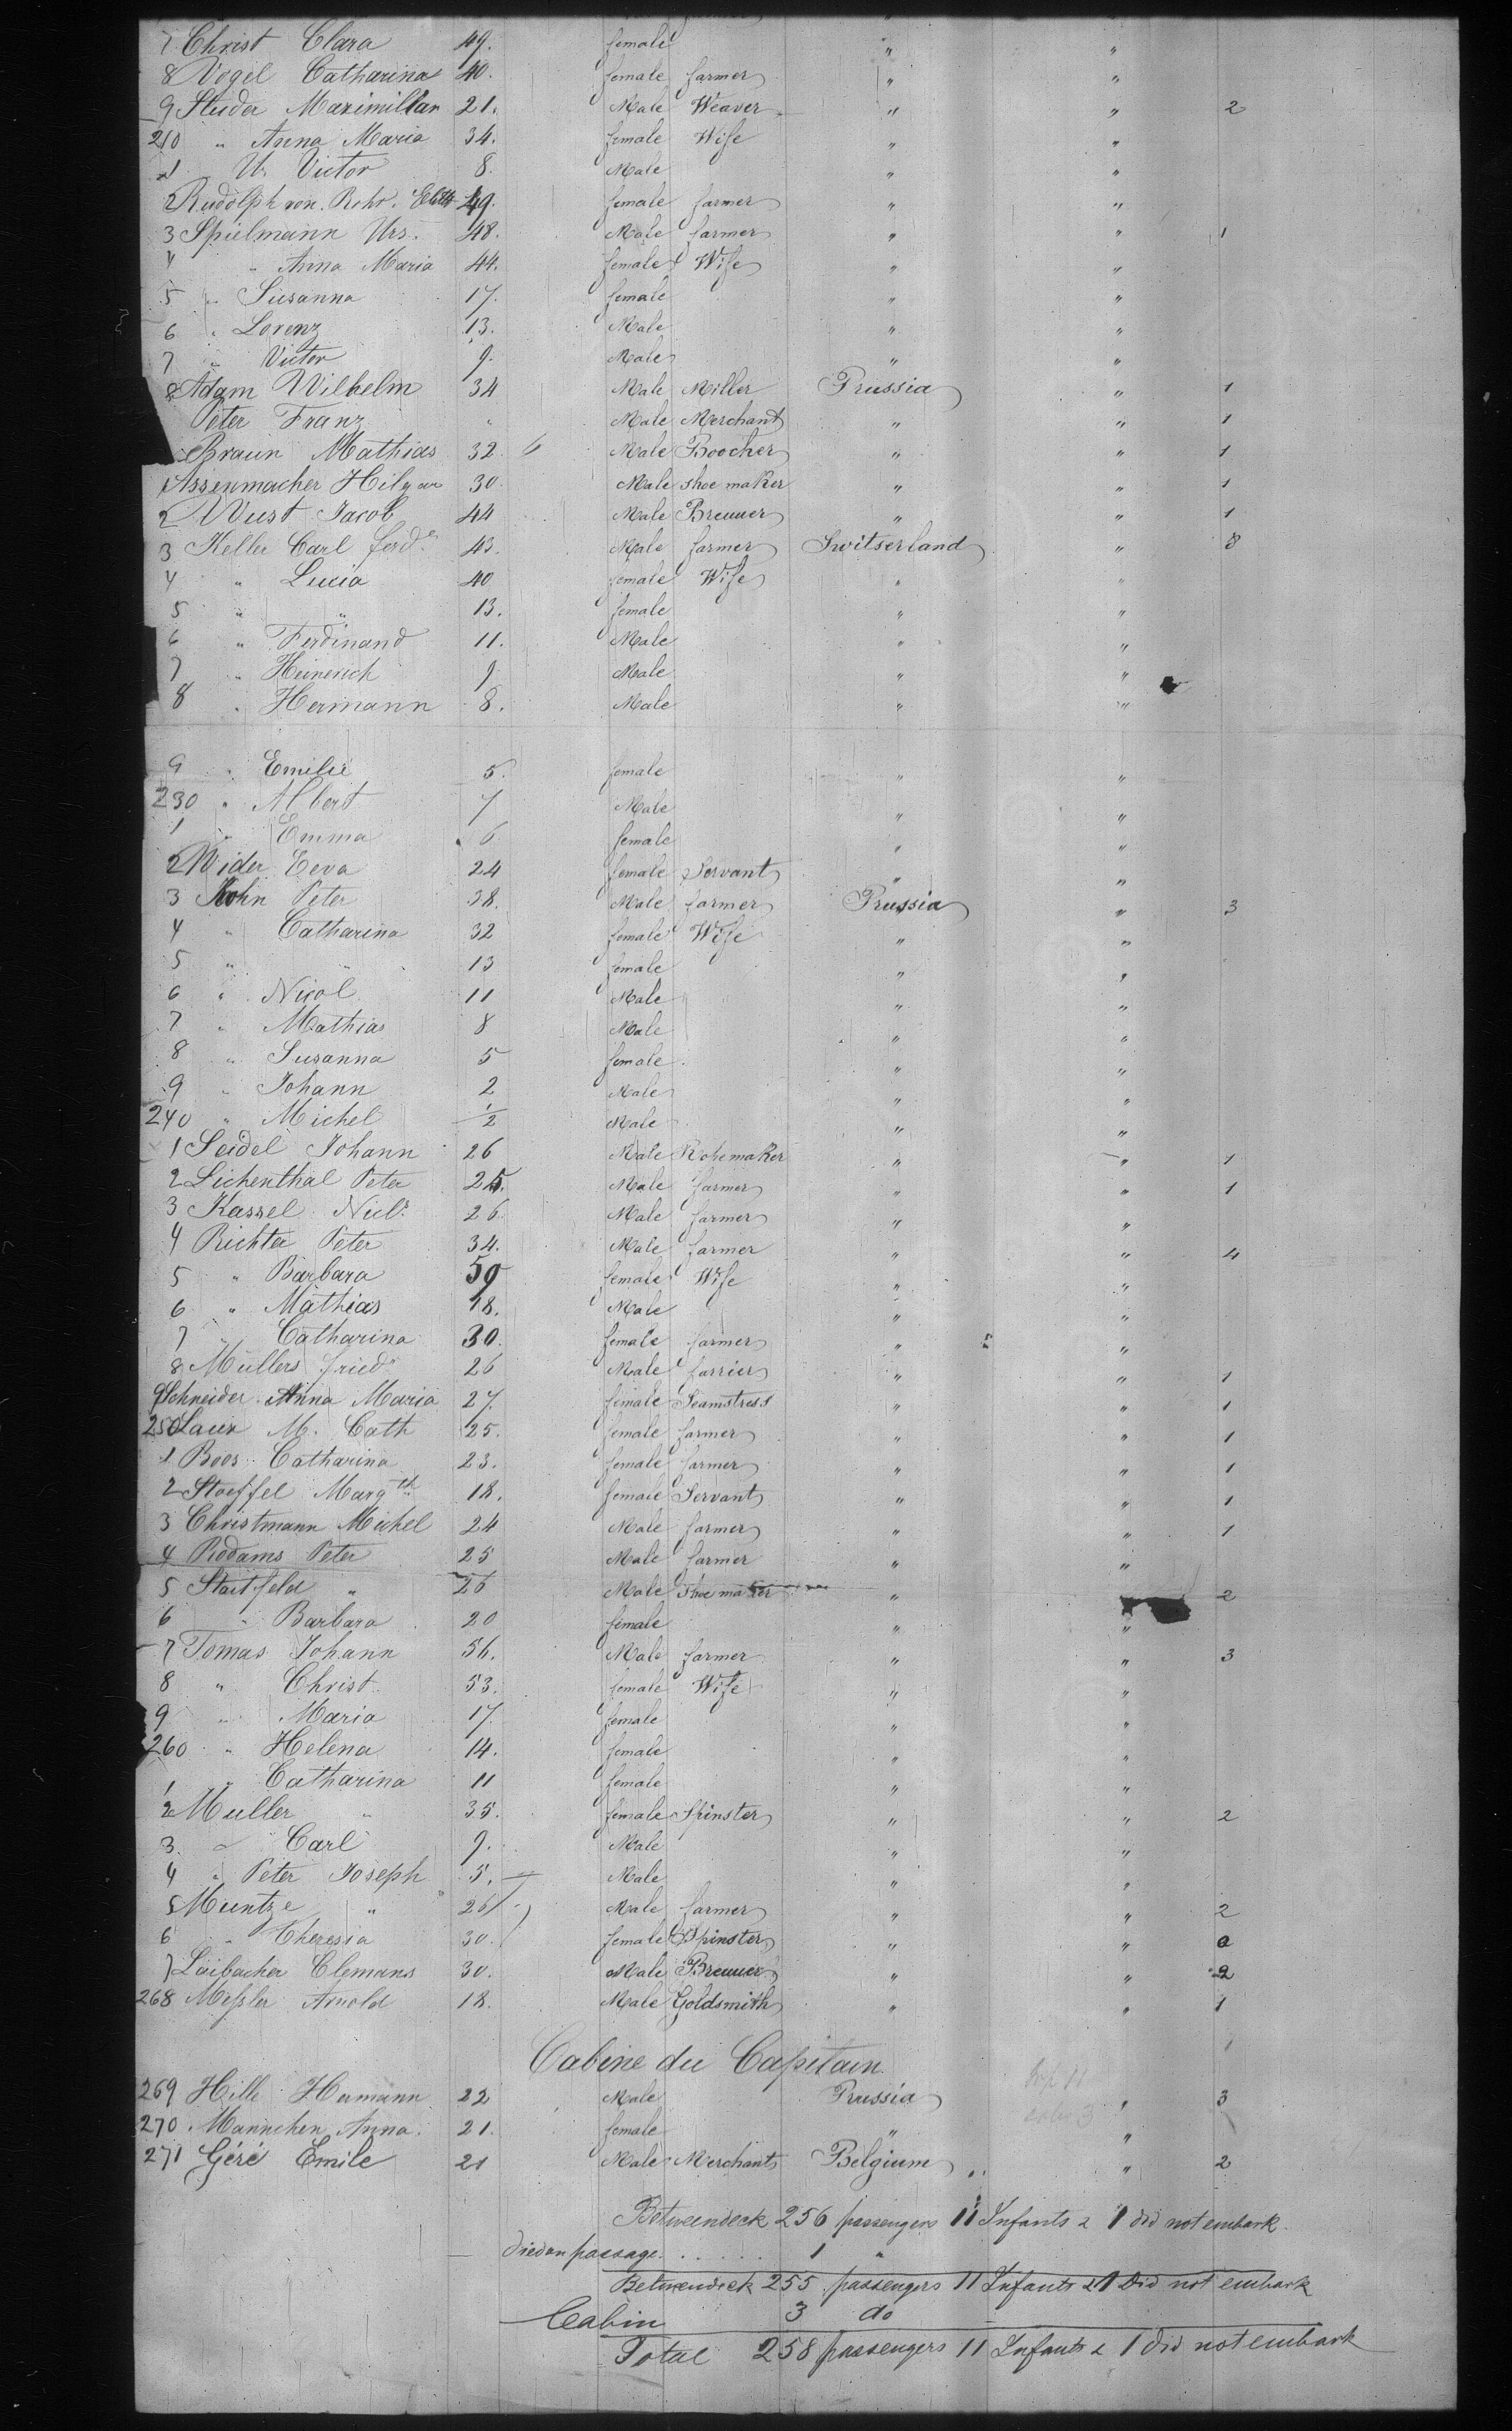 7 Christ Clara 49. female " "
8 Vogel Catharina 40. female farmer " "
9 Studer Maximilian 21. Male Weaver " " 2
210 " Anna Maria 34. female Wife " "
1 " Urs Victor 8. Male " "
2 Rudolph von Rohr. Elisth 49. female farmer " "
3 Spielmann Urs. 48. Male farmer " " 1
4 " Anna Maria 44. female Wife " "
5 " Susanna 17. female " "
6 " Lorenz 13. Male " "
7 " Victor 9. Male " "
8 Adam Wilhelm 34 Male Miller Prussia " 1
Peter Franz " Male Merchant " " 1
Braun Mathias 32 Male Boocher " " 1
1 Assenmacher Hilgar 30 Male shoe maker " " 1
2 Wust Jacob 44 Male Breuuer " " 1
3 Keller Carl ferd. 43. Male farmer Switserland " 8
4 " Lucia 40 female Wife " "
5 " " 13. female " "
6 " Ferdinand 11. Male " "
7 " Heinerich 9 Male " "
8 " Hermann 8. Male " "
9 " Emilie 5. female " "
230 " Albert 7 Male " "
1 " Emma 6 female " "
2 Wider Eeva 24 female Servant " "
3 Kohn Peter 38. Male farmer Prussia " 3
4 " Catharina 32 female Wife " "
5 " " 13 female " "
6 " Nicol 11 Male " "
7 " Mathias 8 Male " "
8 " Susanna 5 female " "
9 " Johann 2 Male " "
240 " Michel 1/2 Male " "
1 Seidel Johann 26 Male " " 1
2 Lichenthal Peter 25. Male farmer " " 1
3 Kassel Nicl. 26. Male farmer " "
4 Richter Peter 34. Male farmer " " 4
5 " Barbara 59 female Wife " "
6 " Mathias 18. Male " "
7 " Catharina 30. female farmer " "
8 Müllers fried. 26 Male farrier " " 1
9 Schneider Anna Maria 27. female Seamstress " " 1
250 Laux M. Cath 25. female farmer " " 1
1 Boos Catharina 23. female farmer " " 1
2 Stoeffel Margth 18. female Servant " " 1
3 Christmann Michel 24 Male farmer " " 1
4 Rodams Peter 25 Male farmer " "
5 Staitfeld " 26 Male shoe maker " 2
6 " Barbara 20 female " "
7 Tomas Johann 56. Male farmer " " 3
8 " Christ. 53. female Wife " "
9 " Maria 17. female " "
260 " Helena 14. female " "
1 " Catharina 11 female " "
2 Muller " 35. female Spinster " " 2
3. " Carl 9. Male " "
4 " Peter Joseph 5. Male " "
5 Muntze " 26 Male farmer " " 2
6 " Theresia 30. female Spinster " "
7 Laibacher Clemans 30. Male Breuuer " " 2
268 Meßler Arnold 18. Male Goldsmith " " 1
Cabine du Capitain
269 Hille Hermann 22 Male Prussia " 3
270 Mannchen Anna. 21. female " "
271 Géré Emile 21 Male Merchant Belgium " 2
Betweendeck 256 passengers 11 Infants & 1 did not embark.
died on passage. . . . . . 1 "
Betweendeck 255 passengers 11 Infants & 1 did not embark
Cabin 3 do
Total 258 passengers 11 Infants & 1 did not embark